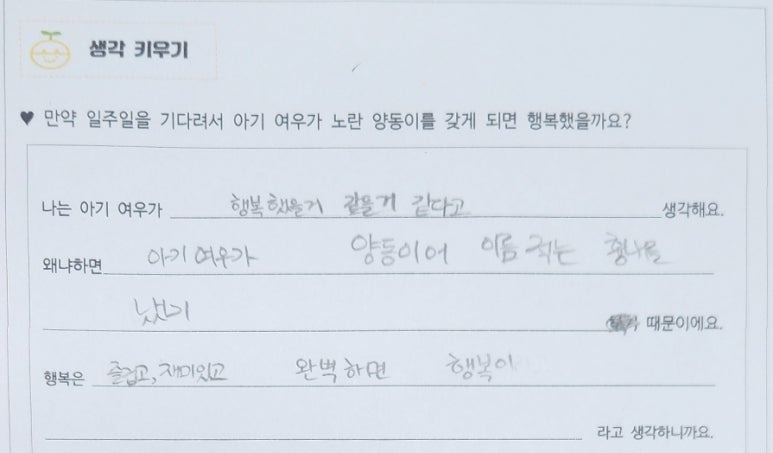 생각 키우기
♥ 만약 일주일을 기다려서 아기 여우가 노란 양동이를 갖게 되면 행복했을까요?
나는 아기 여우가 행복했을거 같을거 같다고 생각해요.
왜냐하면 아기 여우가 양동이어 이름 적는
났기 때문이에요.
행복은 즐겁고, 재미있고 완벽하면 행복이
라고 생각하니까요.